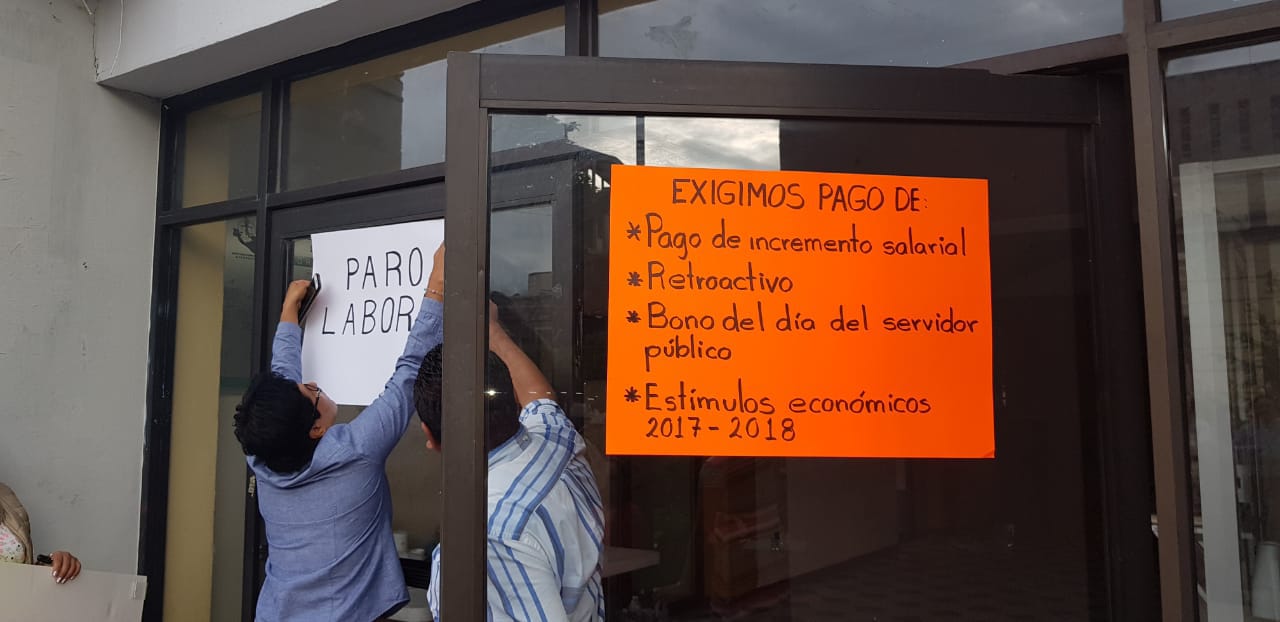 PARO
LABOR
EXIGIMOS PAGO DE:
* Pago de incremento salarial
* Retroactivo
* Bono del día del servidor
público
* Estímulos económicos
2017-2018